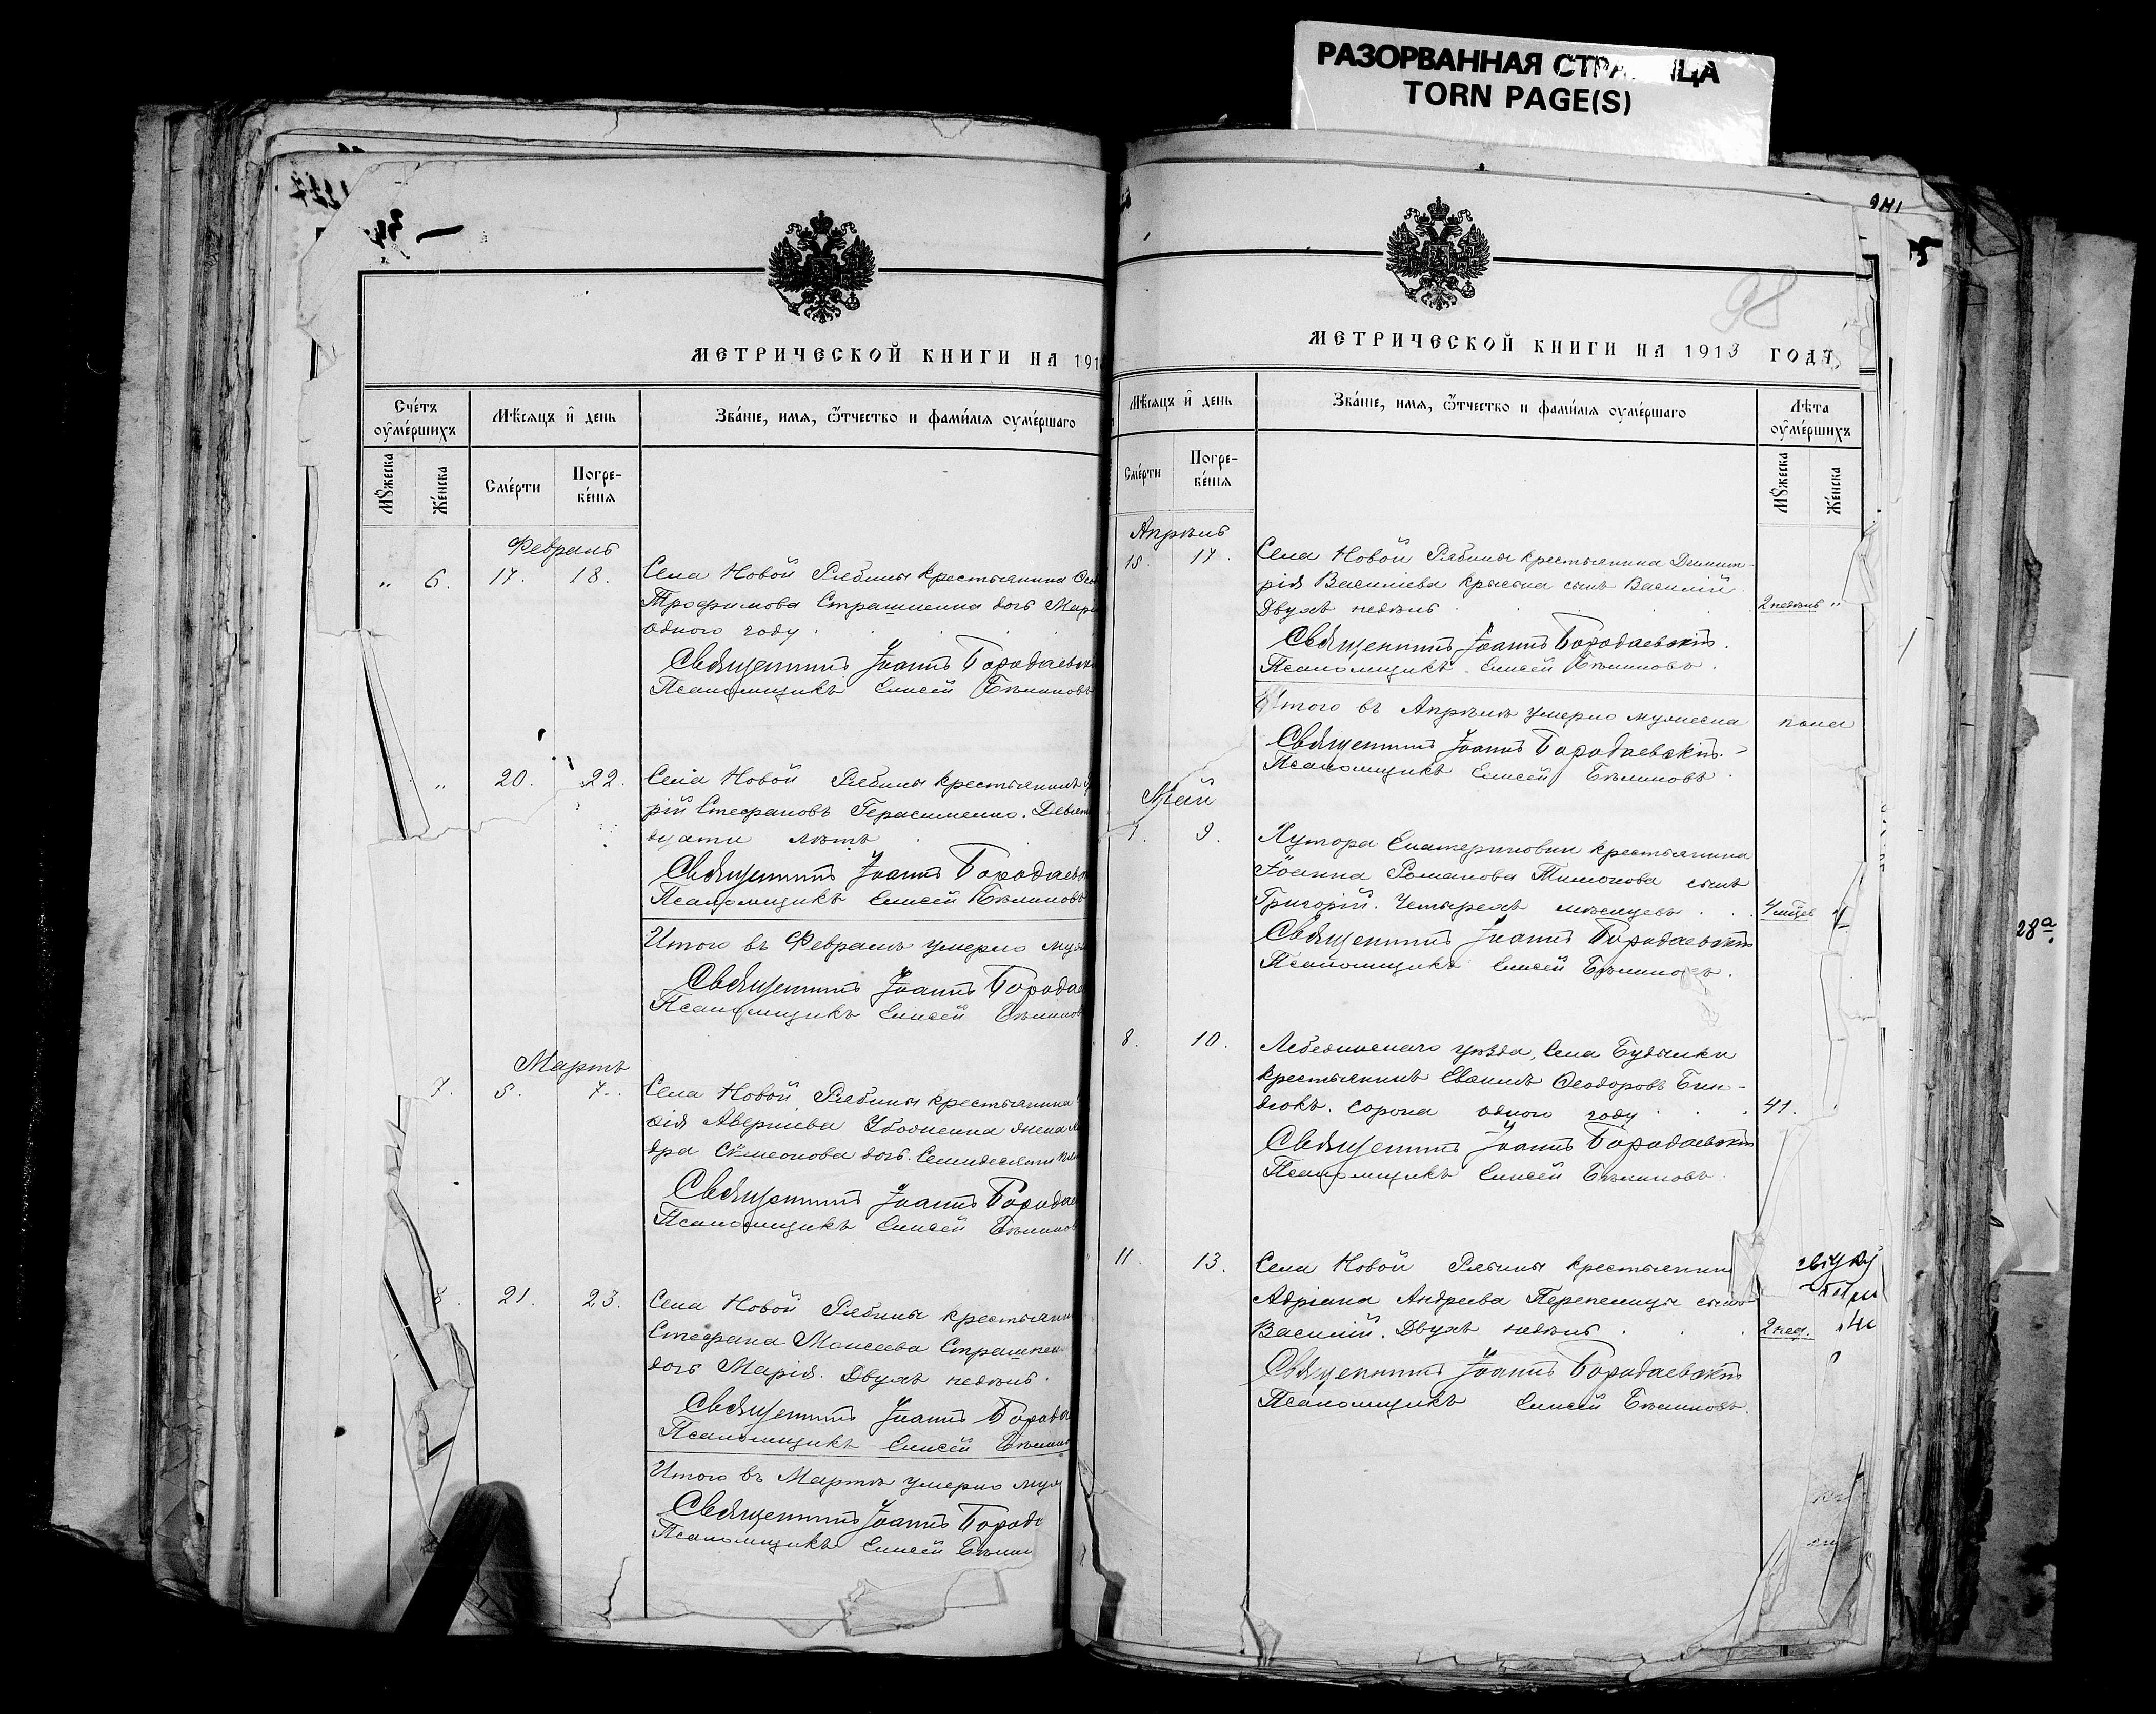 РАЗОРВАННАЯ СТРА ЦА
TORN PAGE(S)
МЕТРИЧЕСКОЙ КНИГИ НА 191
Счетъ оумершихъ
Мѣсяцъ и день
Званіе, имя, ѿтчество и фамилія оумершаго
Мужеска
Женска
Смерти
Погребенія
Февраль
„ 6. 17. 18. Села Новой Рябины крестьянина
Трофимова Страшненка дочь Марі
одного году.
Священникъ Іоаннъ Бородаевскі
Псаломщикъ Елисей Бѣликовъ
„ 20. 22. Села Новой Рябины крестьянинъ
рій Стефановъ Герасименко. Девят
дцати лѣтъ
Священникъ Іоаннъ Бородаев
Псаломщикъ Елисей Бѣликовъ
Итого въ Февралѣ умерло муж
Священникъ Іоаннъ Борода
Псаломщикъ Елисей Бѣликов
Мартъ
7. 5. 7. Села Новой Рябины крестьянина
сія Аверкіева жена
дра Сѵмеонова дочь. Семидесяти
Священникъ Іоаннъ Бородае
Псаломщикъ Елисей Бѣликов
8. 21. 23. Села Новой Рябины крестьяни
Стефана Моисеева Страшнен
дочь Марія. Двухъ недѣль.
Священникъ Іоаннъ Борода
Псаломщикъ Елисей Бѣлик
Итого въ Мартѣ умерло муж
Священникъ Іоаннъ Бород
Псаломщикъ Елисей Бѣлик
98
МЕТРИЧЕСКОЙ КНИГИ НА 1913 ГОДЪ
Мѣсяцъ и день
Званіе, имя, ѿтчество и фамилія оумершаго
Лѣта оумершихъ
Смерти
Погребенія
Мужеска
Женска
Апрѣль
15. 17. Села Новой Рябины крестьянина Димит-
рія Васильева сынъ Василій
Двухъ недѣль 2 недѣль „
Священникъ Іоаннъ Бородаевскій.
Псаломщикъ Елисей Бѣликовъ.
Итого въ Апрѣлѣ умерло мужеска пола
Священникъ Іоаннъ Бородаевскій.
Псаломщикъ Елисей Бѣликовъ.
Май
7. 9. Хутора Екатериновки крестьянина
Іоанна Романова Тимонова сынъ
Григорій. Четырехъ мѣсяцевъ 4 мѣс
Священникъ Іоаннъ Бородаевскій
Псаломщикъ Елисей Бѣликовъ.
8. 10. Лебединскаго уѣзда, Села Будылки
крестьянинъ Ѳеодоровъ Бин-
дюкъ. Сорока одного году 41.
Священникъ Іоаннъ Бородаевскій
Псаломщикъ Елисей Бѣликовъ.
11. 13. Села Новой Рябины крестьянина
Адріана Андреева Перепелицы сынъ
Василій. Двухъ недѣль 2 нед.
Священникъ Іоаннъ Бородаевскій
Псаломщикъ Елисей Бѣликовъ.
28а